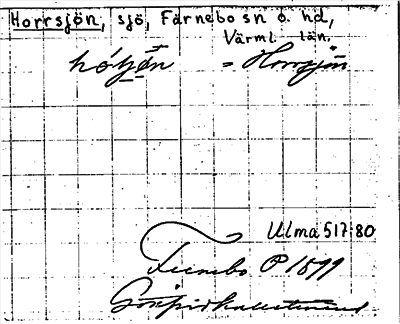 Horrsjön, sjö, Färnebo sn o. hd,
Värml. län.
= Horrsjön
Ulma 517:80
Fernebo P 1899